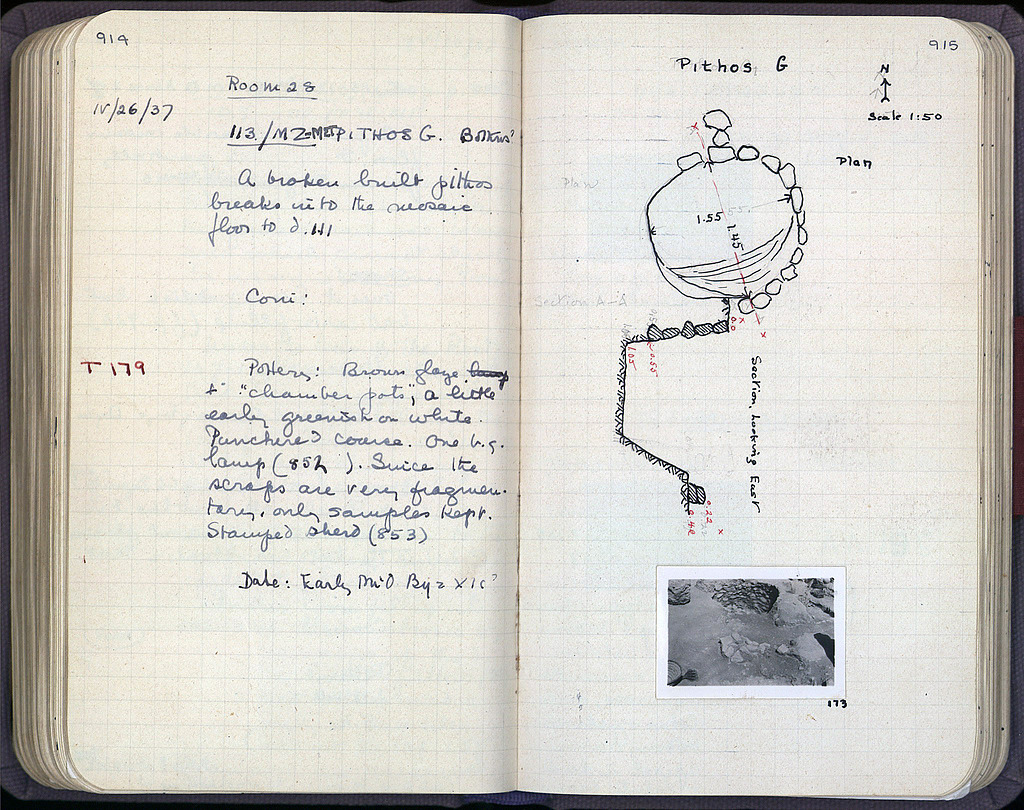 914
Room 28
IV/26/37
113./MZ-MET PITHOS G.
A broken built pithos
breaks into the mosaic
floor to d.111
Coni:
T 179
Pottery: Brown glaze lamp
+ "chamber pots", a little
early greenish on white.
coarse. One b.g.
lamp (852 ). Since the
scraps are very fragmen-
tary, only samples kept.
Stamped sherd (853)
Date: Early Mid Byz XIc?
915
Pithos G
N
Scale 1:50
Plan
Plan
x
1.55
1.45
Section A-A
0.0
x
x
1.05
0.55
Section, Looking East
0.22
x
173